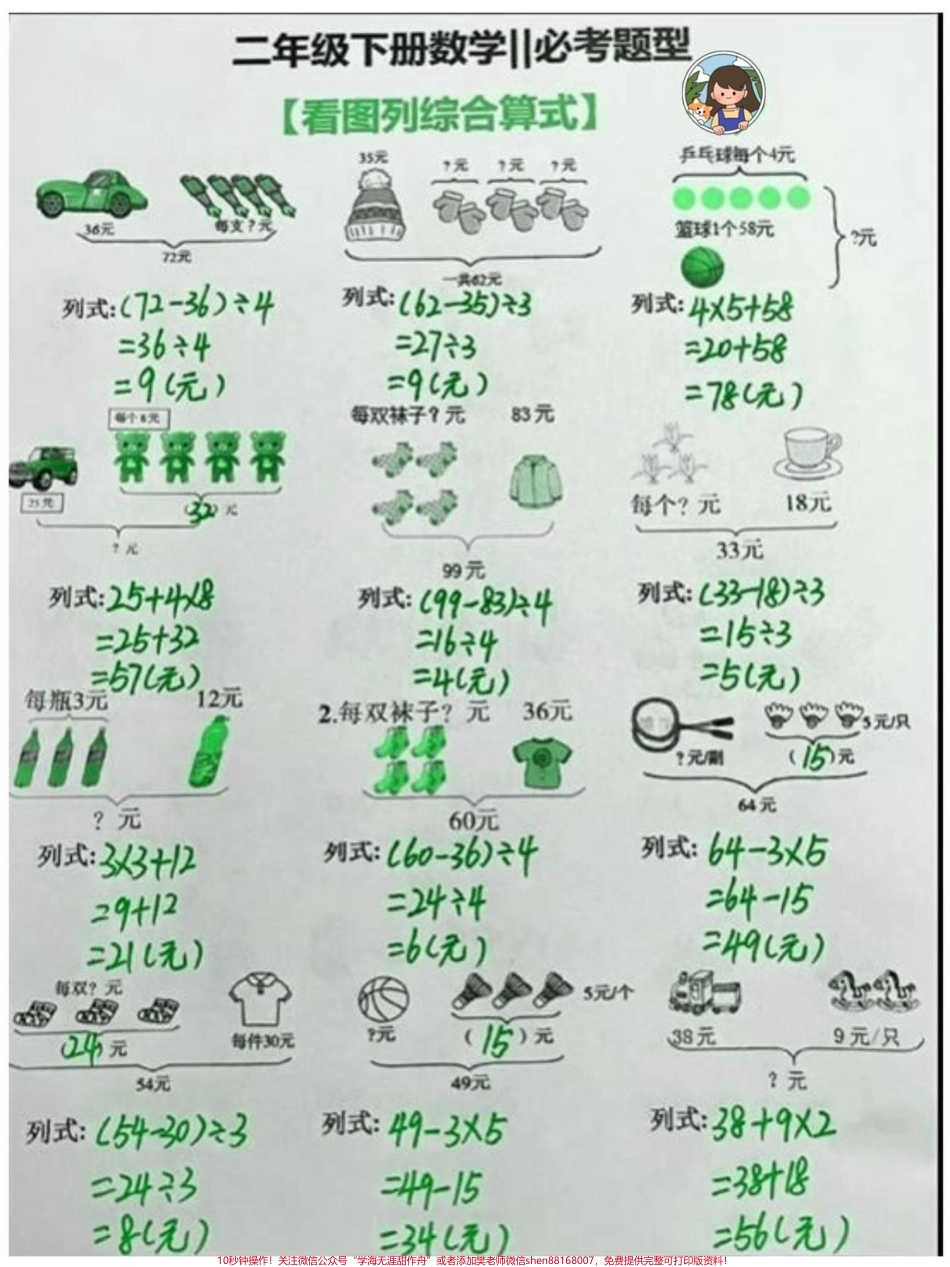 二年级下册数学||必考题型
【看图列综合算式】
36元
每支？元
72元
列式:(72-36)÷4
=36÷4
=9(元)
35元
?元 ?元 ?元
一共62元
列式:(62-35)÷3
=27÷3
=9(元)
乒乓球每个4元
篮球1个58元
?元
列式:4×5+58
=20+58
=78(元)
每个8元
25元
(32)元
?元
列式:25+4×8
=25+32
=57(元)
每双袜子？元 83元
99元
列式:(99-83)÷4
=16÷4
=4(元)
每个？元 18元
33元
列式:(33-18)÷3
=15÷3
=5(元)
每瓶3元 12元
？元
列式:3×3+12
=9+12
=21(元)
2.每双袜子？元 36元
60元
列式:(60-36)÷4
=24÷4
=6(元)
5元/只
?元/副 (15)元
64元
列式:64-3×5
=64-15
=49(元)
每双？元
(24)元 每件30元
54元
列式:(54-30)÷3
=24÷3
=8(元)
5元/个
?元 (15)元
49元
列式:49-3×5
=49-15
=34(元)
38元 9元/只
？元
列式:38+9×2
=38+18
=56(元)
10秒钟操作！关注微信公众号“学海无涯甜作舟”或者添加樊老师微信shen88168007，免费提供完整可打印版资料！